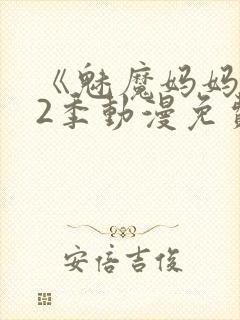 《魅魔妈妈
2季動漫免
安倍吉俊